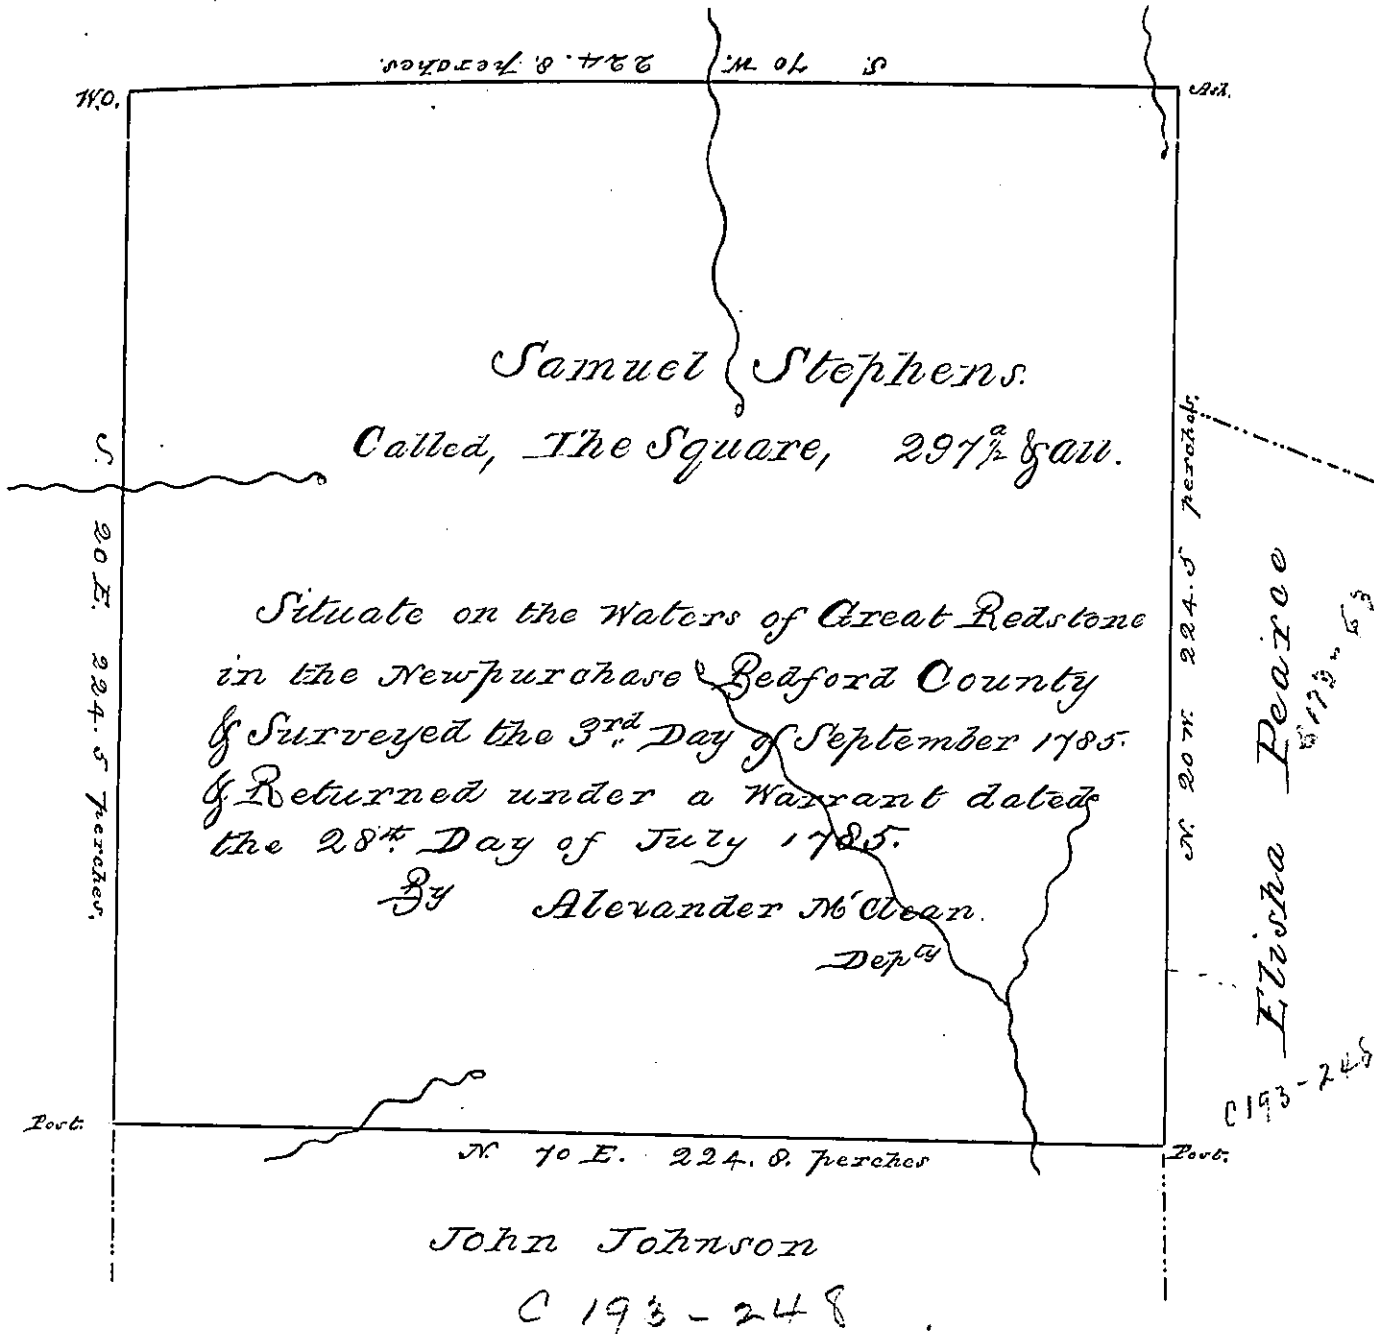 S. 70 W. 224.8. perches.
W.O.
Ash.
Samuel Stephens.
Called, The Square, 297½ᵃ & all.
S. 20 E. 224.5 perches.
N. 20 W. 224.5 perches.
Situate on the Waters of Great Redstone
in the Newpurchase Bedford County
& Surveyed the 3rd. Day of September 1785.
& Returned under a Warrant dated
the 28th. Day of July 1785.
By Alexander McClean.
Depty
Elisha Pearce
C 193-248
Post.
N. 70 E. 224.8. perches
Post.
John Johnson
C 193-248